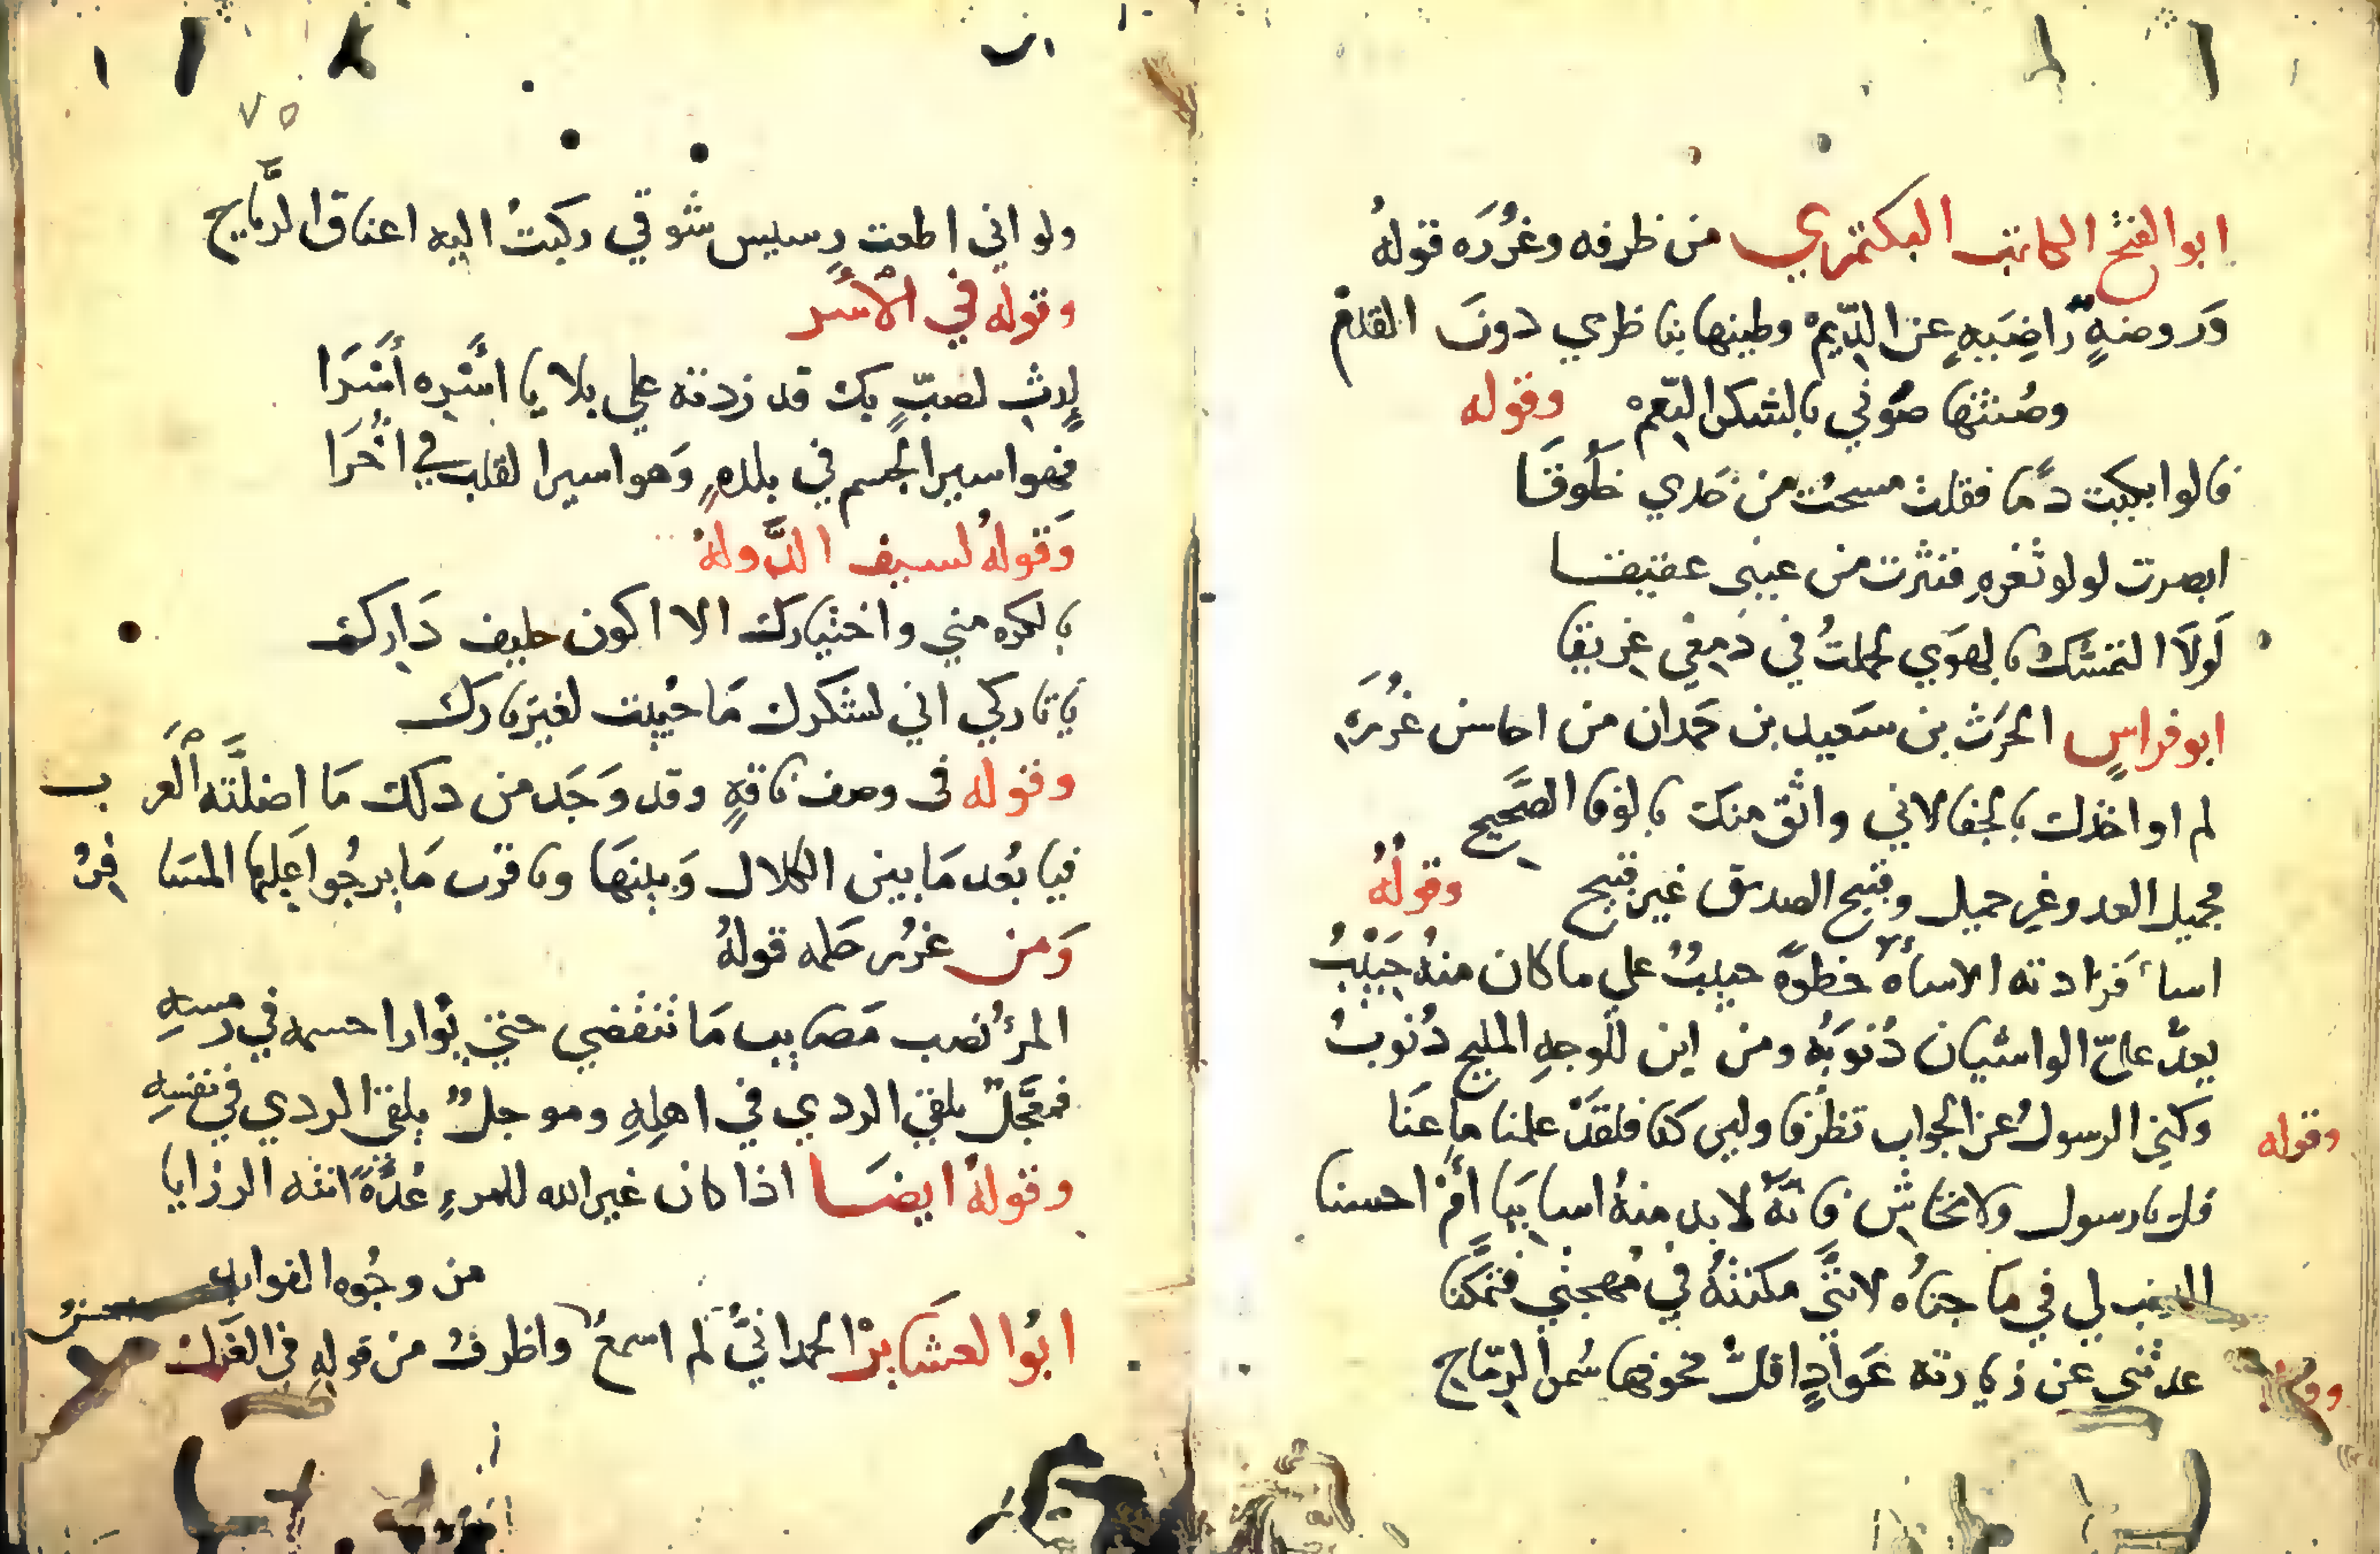 ابو الفتح الكاتب البكتمري من ظرفه وغُرَره قولهُ
وَروضهٍ رَاضِيَيهٍ عن الدّيمْ وطيتها بناظري دونَ القدم
وصُنتها صوُني بالشكر النّعمْ وقوله
قالوا بكيت دمًا فقلت مسحت من خدي خلُوقَا
ابصرت لولو ثغرهِ فنثرت من عيني عقيقا
لَولَا التمسّك بالهوَي لحملتُ في دَمعي غريقا
ابو فراسٍ الحرَث بن سَعيد بن حَمدان من احاسن غُرَرَه
لم اواخذك بالجفا لاني واثق منك بالوفا الصَّحيح
فجميل العدو غير جميل وقبيح الصديق غير قبيح وقولهُ
اسا فزادته الاساه خطوَهً حبيبٌ علي ما كان منهُ حَبيْبُ
يعدّ عليّ الواشيان ذُنوَبُه ومن اين للوجهِ المليح ذُنُوبُ
وقوله وكني الرسولُ عن الجواب تظرفا وليَن كنَا فلقَدْ علمنا ما عنَا
قل يا رسول ولا تحاش فانهٌ لا بد منهُ اسا بيَا أمْ احسنا
الذنب لي في ما جناُه لانَّني مكنتهُ في مُهجتي فتمكَّنا
وقوله عدتني عن زيارته عَوادٍ اقلّ مخوفها سُمر الرِمّاح
٧٥
ولو اني اطعت رسيس شوقي ركبتُ اليه اعناق الرِّيَاح
وقوله في الاسْر
اِرثِ لصبٍّ بك قد زدته علي بلايا اسَرِه أسَرَا
فهو اسير الجسم في بلدهٍ وَهو اسير القلب في اخُرَا
وَقولهُ لسيف الدَّولهْ
بالكره مني واختيارك الا اكون حليف دَارك
يا تاركي اني لشكرك مَا حيْيت لغير تارك
وقوله في وصف ناقهٍ وقد وَجَد من دلك مَا اضلَّته العَرب
فيا بعُد مَا بين الكلال وَبينهَا ويا قرب مَا يرجُوا عَليها المسَافرُ
وَمن غررُ حكمه قولهُ
المرؤ نصب مَصايب مَا تنقضي حتي يُوارا جسمه في رمسهِ
فمعَجَّلٌ يلقي الردي في اهلِهِ وموجلٌ يلقي الردي في نفسِهِ
وقولهُ ايضَا اذا كان غير الله للمرءِ عُدَّهً اتته الرزايا
من وجُوه الفوايد
ابُوا العشَاير الحمدانيُّ لم اسمعْ واظرفُ من قولِه في الغَزل